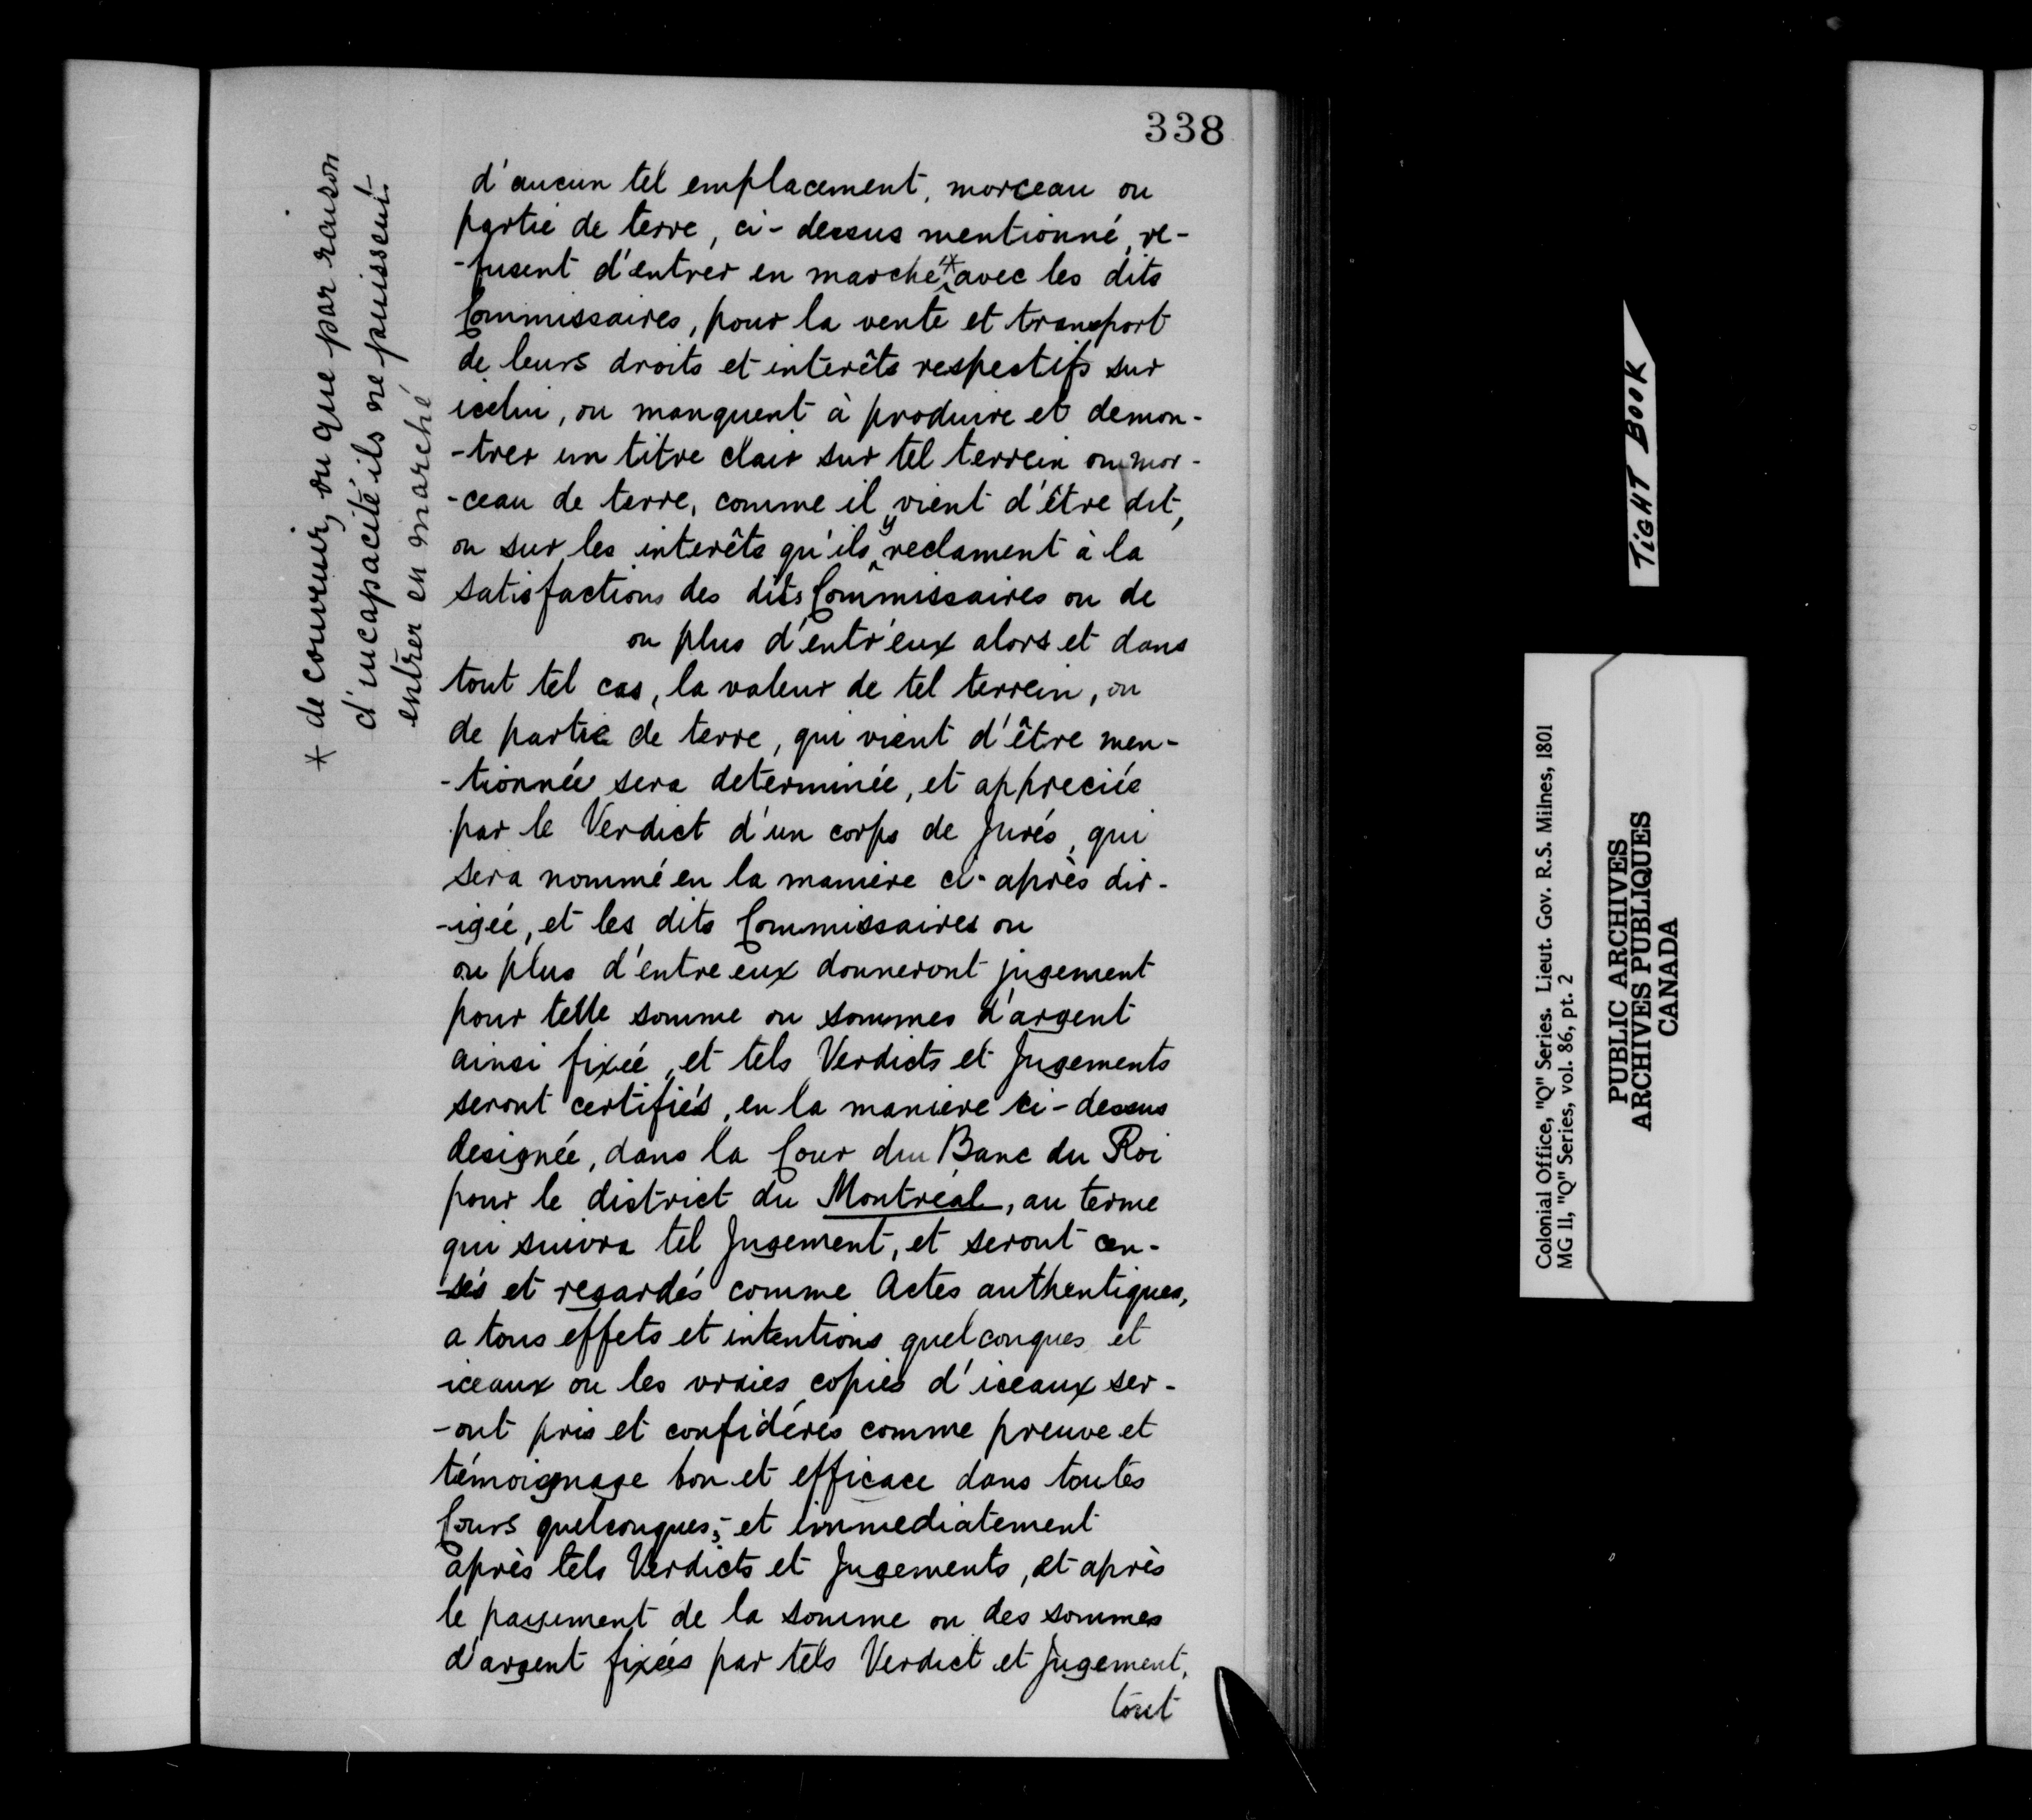 338
d'aucun tel emplacement, morceau ou
partie de terre, ci-dessus mentionné, re-
-fusent d'entrer en marché * avec les dits
Commissaires, pour la vente et transport
de leurs droits et interêts respectifs sur
icelui, ou manquent à produire et demon-
-trer un titre clair sur tel terrein ou mor-
-ceau de terre, comme il vient d'être dit,
ou sur les interêts qu'ils y reclament à la
satisfactions des dits Commissaires ou de
ou plus d'entr'eux alors et dans
tout tel cas, la valeur de tel terrein, ou
de partie de terre, qui vient d'être men-
-tionnée sera determinée, et appreciée
par le Verdict d'un corps de Jurés, qui
sera nommé en la maniere ci-après dir-
-igée, et les dits Commissaires ou
ou plus d'entre eux donneront jugement
pour telle somme ou sommes d'argent
ainsi fixée, et tels Verdicts et Jugements
seront certifiés, en la maniere ci-dessus
designée, dans la Cour du Banc du Roi
pour le district du Montréal, au terme
qui suivra tel Jugement, et seront cen-
-sés et regardés comme Actes authentiques,
a tous effets et intentions quelconques et
iceaux ou les vraies copies d'iceaux ser-
-ont pris et confidérés comme preuve et
témoignage bon et efficace dans toutes
Cours quelconques;- et immediatement
après tels Verdicts et Jugements, et après
le payement de la somme ou des sommes
d'argent fixées par tels Verdict et Jugement,
tout
* de couvrir, ou que par raison
d'incapacité ils ne puissent
entrer en marché
TIGHT BOOK
Colonial Office, "Q" Series. Lieut. Gov. R.S. Milnes, 1801
MG 11, "Q" Series, vol. 86, pt. 2
PUBLIC ARCHIVES
ARCHIVES PUBLIQUES
CANADA